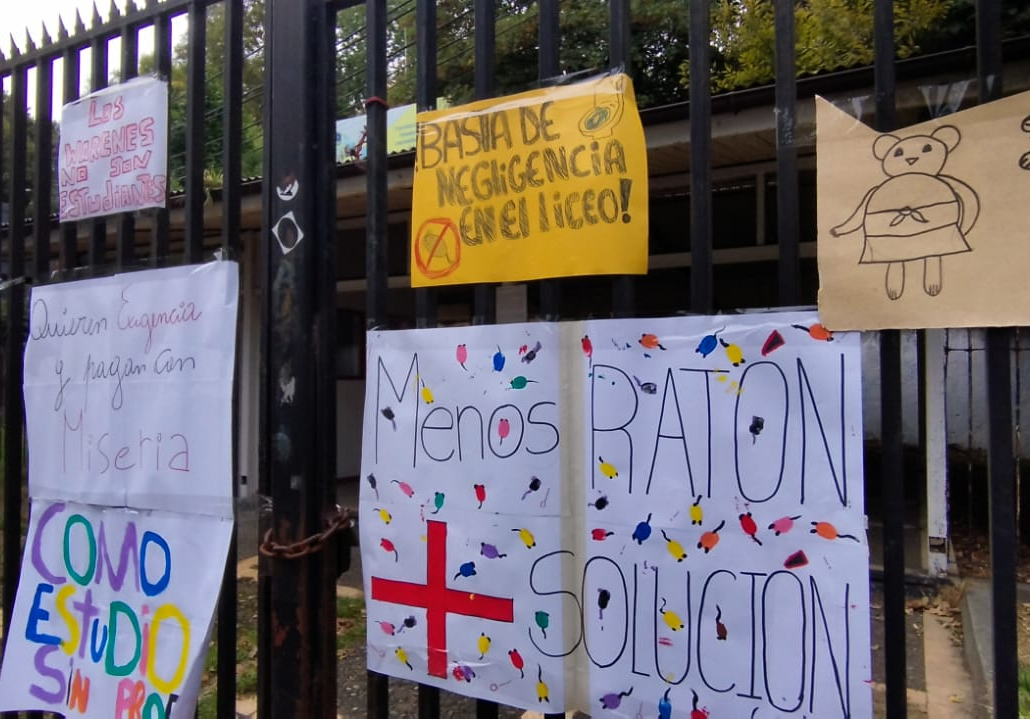 Los
WARENES
NO SON
ESTUDIANTES
BASTA DE
NEGLIGENCIA
EN El liCEO!
Quieren Exigencia
y pagan con
Miseria
COMO
EStuDiO
SiN PROF
Menos RATON
+ SOLUCION